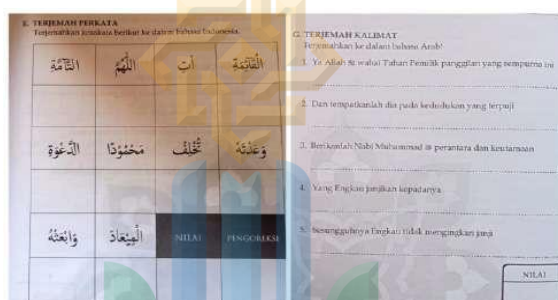 E. TERJEMAH PERKATA
Terjemahkan kosakata berikut ke dalam bahasa Indonesia.
الْقَائِمَةِ آتِ اللّٰهُمَّ التَّامَّةِ
وَعَدْتَهُ تُخْلِفُ مَحْمُوْدًا الدَّعْوَةِ
وَابْعَثْهُ الْمِيْعَادَ NILAI PENGOREKSI
G. TERJEMAH KALIMAT
Terjemahkan ke dalam bahasa Arab!
1. Ya Allah wahai Tuhan Pemilik panggilan yang sempurna ini
2. Dan tempatkanlah dia pada kedudukan yang terpuji
3. Berikanlah Nabi Muhammad ﷺ perantara dan keutamaan
4. Yang Engkau janjikan kepadanya
5. Sesungguhnya Engkau tidak mengingkari janji
NILAI